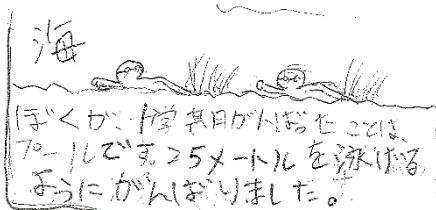 海
ぼくが、1学期がんばったことは、
プールです25メートルを泳げる
ようにがんばりました。